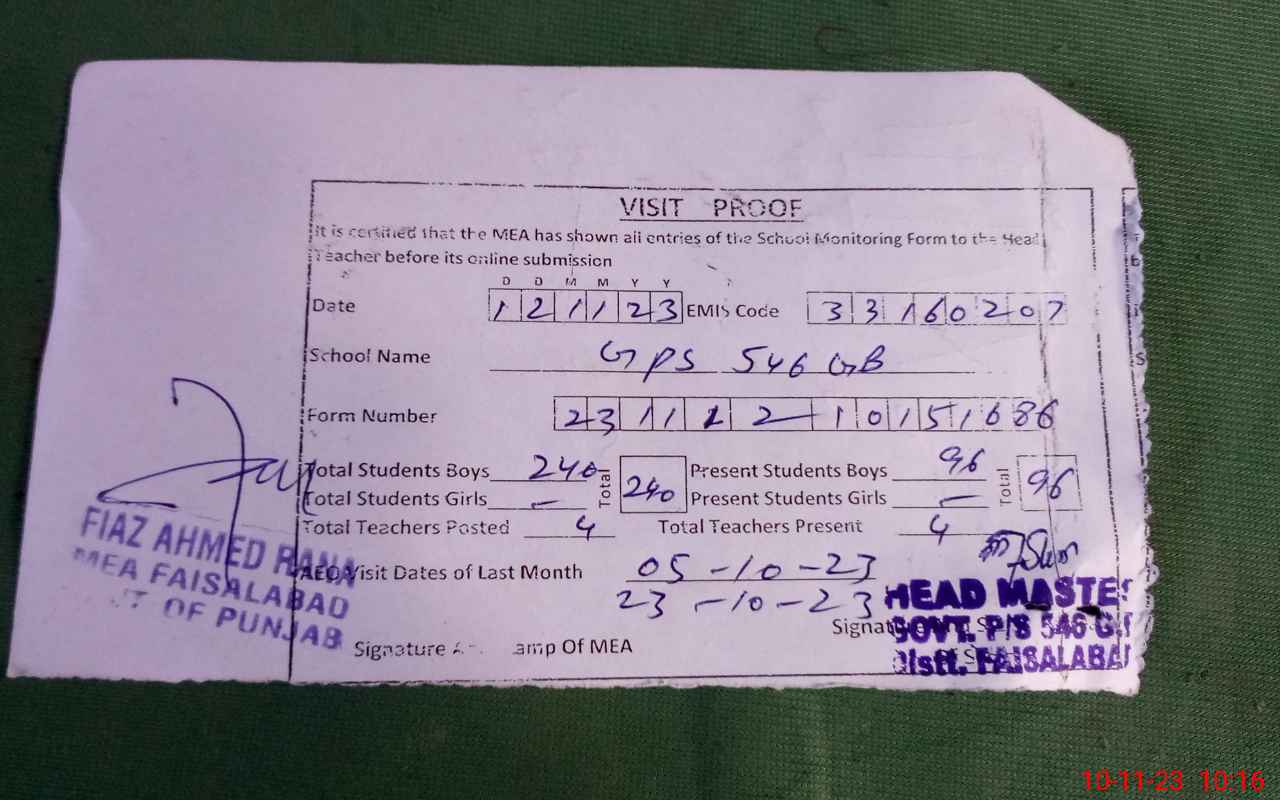 VISIT PROOF
It is certified that the MEA has shown all entries of the School Monitoring Form to the Head
Teacher before its online submission
D D M M Y Y
Date 1 2 1 1 2 3 EMIS Code 3 3 1 6 0 2 0 7
School Name GPS 546 GB
Form Number
Total Students Boys 240 Total 240 Present Students Boys 96 Total 96
Total Students Girls – Present Students Girls –
Total Teachers Posted 4 Total Teachers Present 4
AEO Visit Dates of Last Month 05-10-23
23-10-23
FIAZ AHMED RANA
MEA FAISALABAD
OF PUNJAB
Signature Of MEA
HEAD MASTE
GOVT. P/S 546 G.
Distt. FAISALABA
10-11-23 10:16